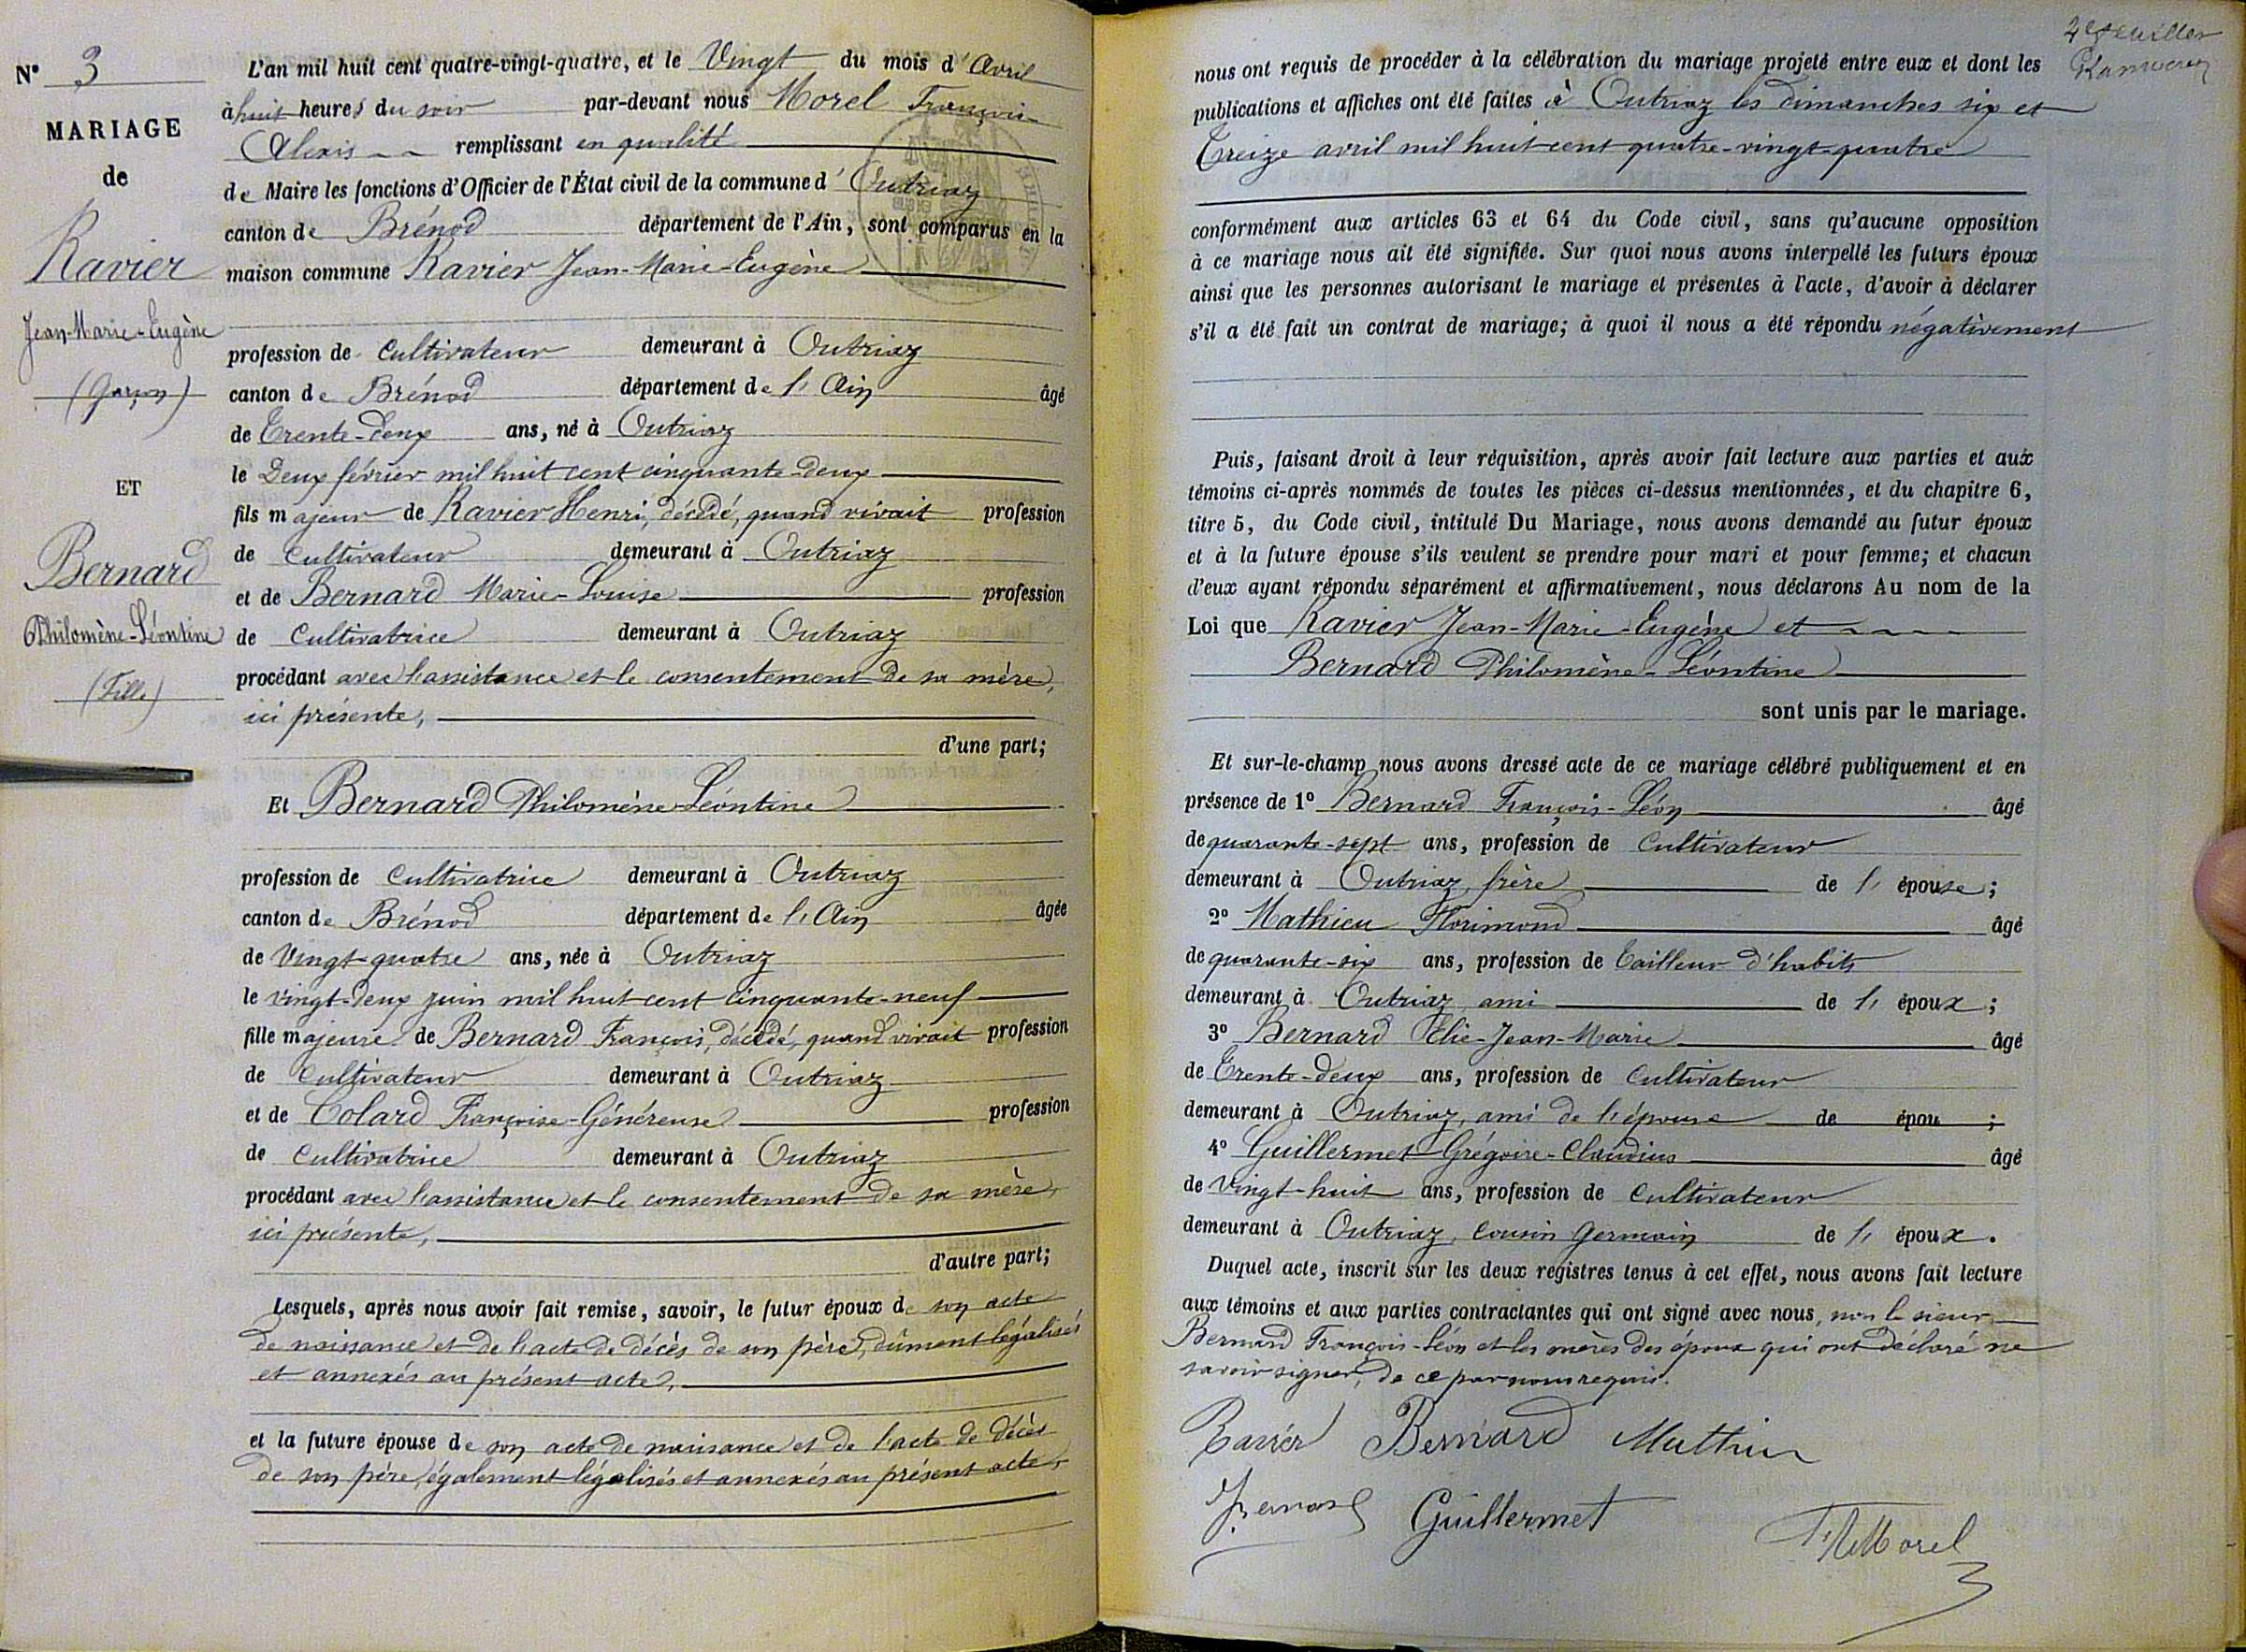 N° 3
MARIAGE
de
Ravier
Jean-Marie-Eugène
(Garçon)
ET
Bernard
Philomène-Léontine
(Fille)
L'an mil huit cent quatre-vingt-quatre, et le Vingt du mois d'Avril
à huit heures du soir par-devant nous Morel François
Alexis remplissant en qualité
de Maire les fonctions d'Officier de l'État civil de la commune d'Outriaz
canton de Brénod département de l'Ain, sont comparus en la
maison commune Ravier Jean-Marie-Eugène
profession de cultivateur demeurant à Outriaz
canton de Brénod département de l'Ain âgé
de Trente-deux ans, né à Outriaz
le Deux février mil huit cent cinquante-deux
fils majeur de Ravier Henri, décédé, quand vivait profession
de cultivateur demeurant à Outriaz
et de Bernard Marie-Louise profession
de cultivatrice demeurant à Outriaz
procédant avec l'assistance et le consentement de sa mère,
ici présente,
d'une part;
Et Bernard Philomène-Léontine
profession de cultivatrice demeurant à Outriaz
canton de Brénod département de l'Ain âgée
de Vingt-quatre ans, née à Outriaz
le vingt-deux juin mil huit cent cinquante-neuf
fille majeure de Bernard François, décédé, quand vivait profession
de cultivateur demeurant à Outriaz
et de Colard Françoise-Généreuse profession
de cultivatrice demeurant à Outriaz
procédant avec l'assistance et le consentement de sa mère,
ici présente,
d'autre part;
Lesquels, après nous avoir fait remise, savoir, le futur époux de son acte
de naissance et de l'acte de décès de son père, dûment légalisés
et annexés au présent acte,
et la future épouse de son acte de naissance et de l'acte de décès
de son père, également légalisés et annexés au présent acte,
2e feuillet
nous ont requis de procéder à la célébration du mariage projeté entre eux et dont les
publications et affiches ont été faites à Outriaz les dimanches six et
Treize avril mil huit cent quatre-vingt-quatre
conformément aux articles 63 et 64 du Code civil, sans qu'aucune opposition
à ce mariage nous ait été signifiée. Sur quoi nous avons interpellé les futurs époux
ainsi que les personnes autorisant le mariage et présentes à l'acte, d'avoir à déclarer
s'il a été fait un contrat de mariage; à quoi il nous a été répondu négativement
Puis, faisant droit à leur réquisition, après avoir fait lecture aux parties et aux
témoins ci-après nommés de toutes les pièces ci-dessus mentionnées, et du chapitre 6,
titre 5, du Code civil, intitulé Du Mariage, nous avons demandé au futur époux
et à la future épouse s'ils veulent se prendre pour mari et pour femme; et chacun
d'eux ayant répondu séparément et affirmativement, nous déclarons Au nom de la
Loi que Ravier Jean-Marie-Eugène et
Bernard Philomène-Léontine
sont unis par le mariage.
Et sur-le-champ nous avons dressé acte de ce mariage célébré publiquement et en
présence de 1° Bernard François-Léon âgé
de quarante-sept ans, profession de cultivateur
demeurant à Outriaz, frère de l'épouse;
2° Mathieu Florimond âgé
de quarante-six ans, profession de Tailleur d'habits
demeurant à Outriaz ami de l'époux;
3° Bernard Elie-Jean-Marie âgé
de Trente-deux ans, profession de cultivateur
demeurant à Outriaz, ami de l'épouse de épou ;
4° Guillermet Grégoire-Claudius âgé
de Vingt-huit ans, profession de cultivateur
demeurant à Outriaz, cousin germain de l'époux.
Duquel acte, inscrit sur les deux registres tenus à cet effet, nous avons fait lecture
aux témoins et aux parties contractantes qui ont signé avec nous, non le sieur
Bernard François-Léon et les mères des époux qui ont déclaré ne
savoir signer, de ce par nous requis.
Ravier Bernard Mathieu
Bernard Guillermet
Morel